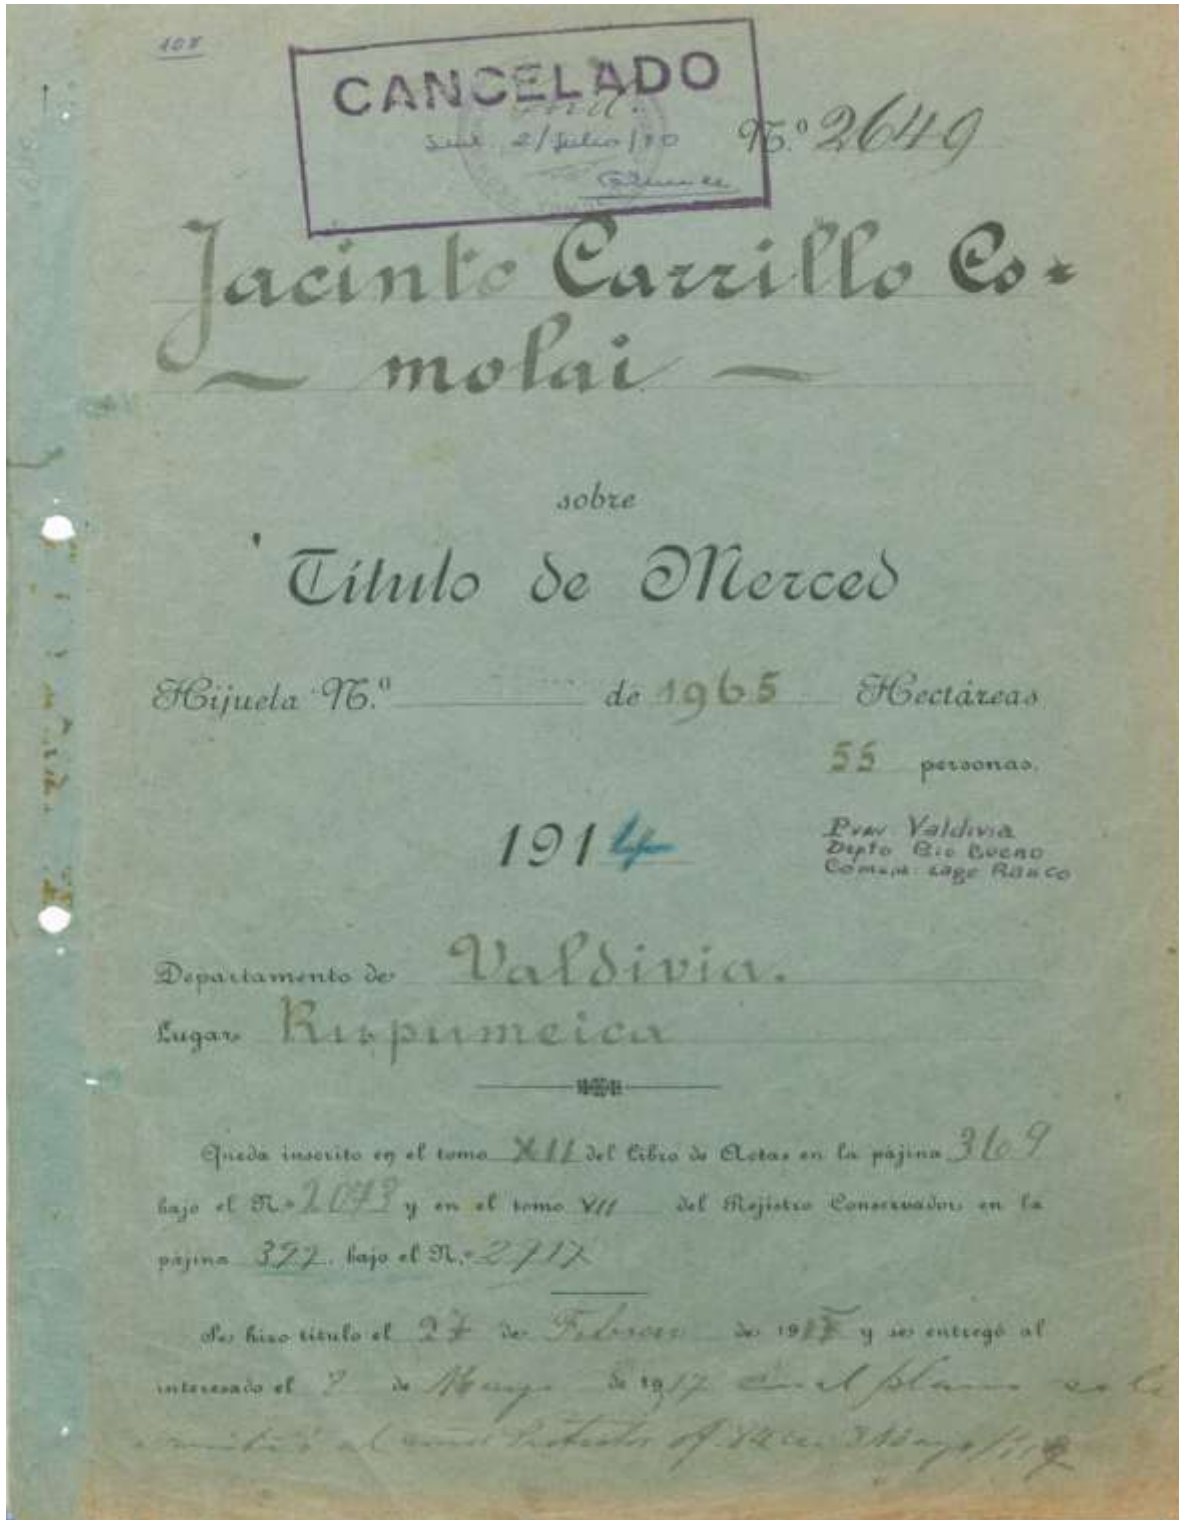 108
CANCELADO
2/Julio/70
N.º 2649
Jacinto Carrillo Co-
molai
sobre
Título de Merced
Hijuela N.º de 1965 Hectáreas
55 personas.
1914
Prov Valdivia
Depto Rio Bueno
Comun. Lago Ranco
Departamento de Valdivia.
Lugar Rupumeica
Queda inscrito en el tomo XII del Libro de Actas en la página 369
bajo el N.º 2073 y en el tomo VII del Rejistro Conservador, en la
página 397, bajo el N.º 2717
Se hizo título el 27 de Febrero de 1917 y se entregó al
interesado el de Mayo de 1917 en el plano se le
al Mayo/